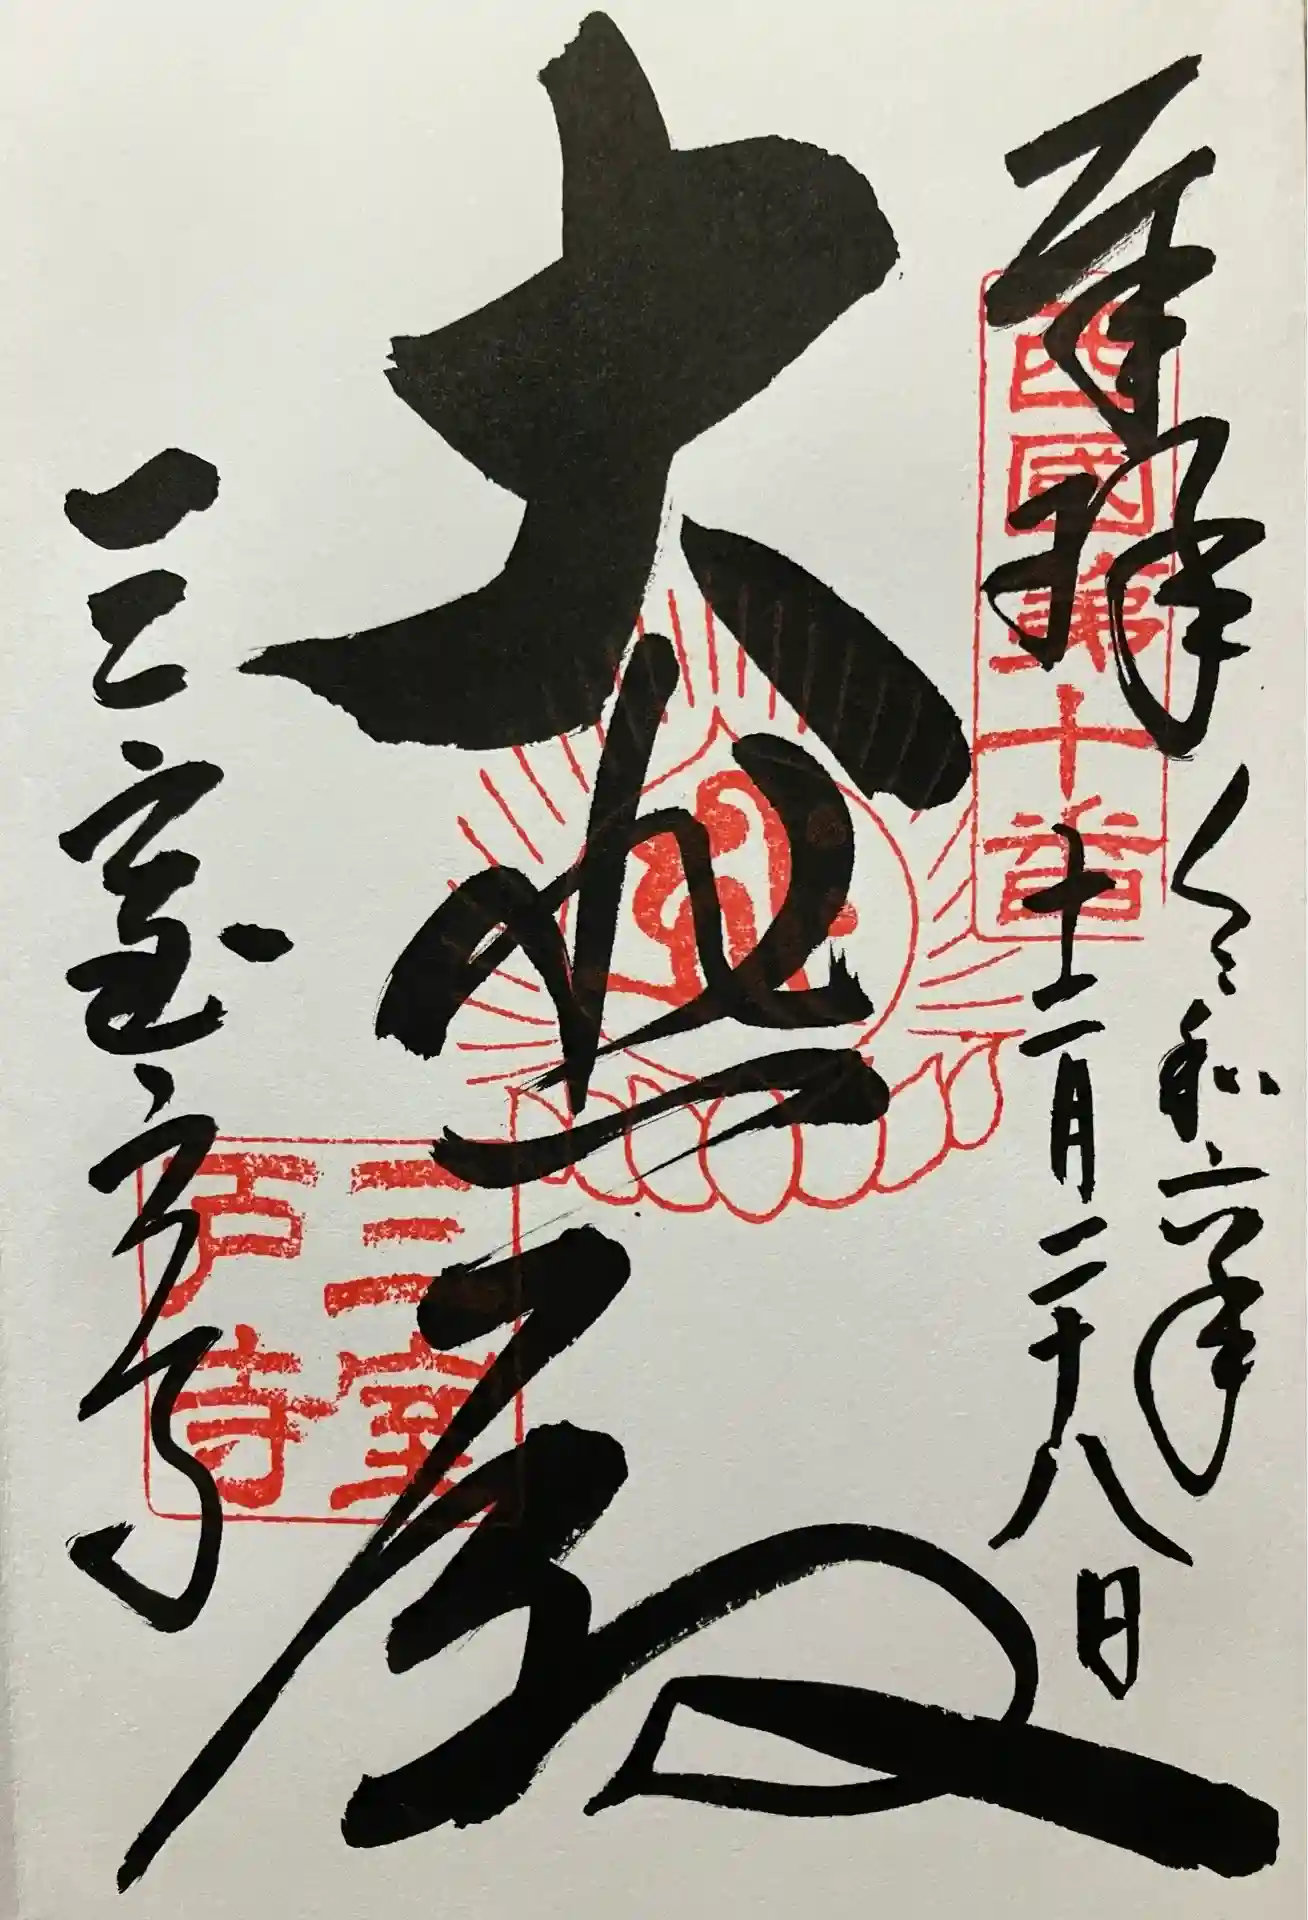 奉拝
令和六年
十二月二十八日
西國第十番
大悲殿
三室戸寺
三室戸寺